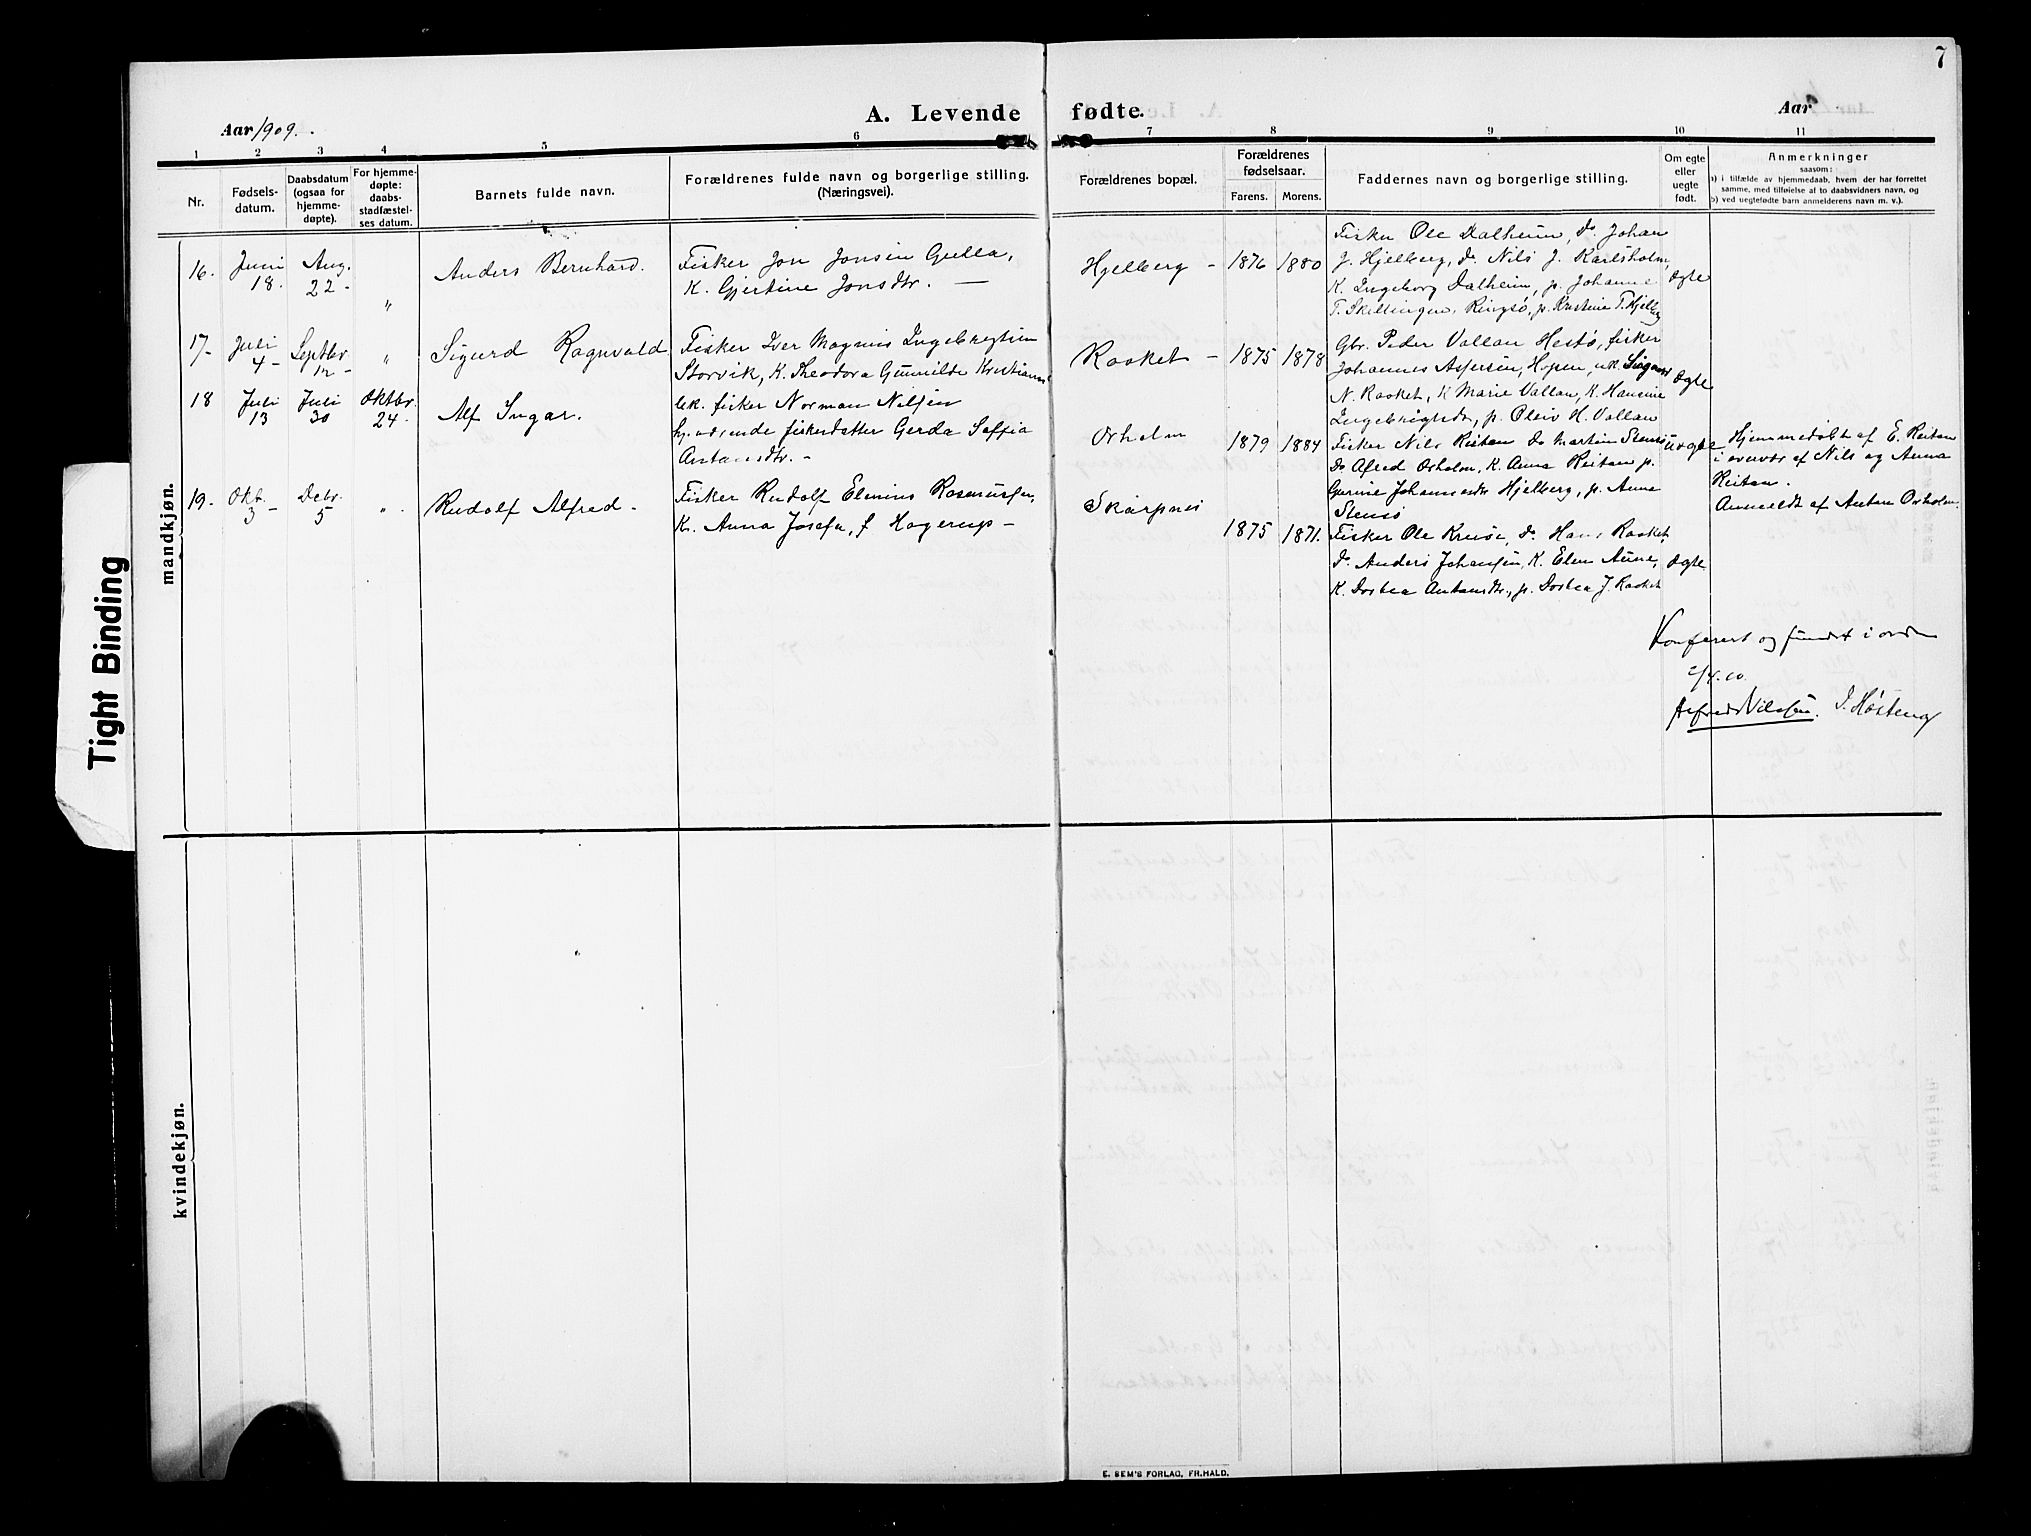 7
A. Levende fødte.
Aar 1909.
Aar
1 2 3 4 5 6 7 8 9 10 11
Nr.
Fødsels-
datum.
Daabsdatum
(ogsaa for
hjemme-
døpte).
For hjemme-
døpte:
daabs-
stadfæstel-
ses datum.
Barnets fulde navn.
Forældrenes fulde navn og borgerlige stilling.
(Næringsvei).
Forældrenes bopæl.
Forældrenes
fødselsaar.
Farens. Morens.
Faddernes navn og borgerlige stilling.
Om egte
eller
uegte
født.
Anmerkninger
saasom:
a) i tilfælde av hjemmedaab, hvem der har forrettet
samme, med tilføielse af to daabsvidners navn, og
b) ved uegtefødte barn anmelderens navn m. v.).
mandkjøn.
16.
Juni
18.
Aug.
22 -
"
Anders Bernhard.
Fisker Jon Jonsen Gulla,
K. Gjertine Jonsdtr. —
Hjelberg -
1876 1880
Fisker Ole Dalheim, do Johan
J. Hjelberg, do Nils J. Karlsholm,
K. Ingeborg Dalheim, p. Johanne
T. Skellingen, Ringsø, p. Kristine T. Hjelberg
ægte
17-
Juli
4 -
Septbr
12 -
"
Sigurd Ragnvald
Fisker Iver Magnus Ingebregtsen
Storvik, K. Theodora Gunnilde Kristians
Rosket -
1875 1878
Gbr. Peder Vollan Hestø, fisker
Johannes Aspersen, Hopen,
N. Rosket, K Marie Vollan, K. Hansine
p. Oleiv H. Vollan
ægte
18
Juli
13
Juli
30
Oktbr.
24.
Alf Ingar.
Uk. fisker Norman Nilsen
fiskerdatter Gerda Soffia
Antonsdtr. -
Orholm
1879 1884
Fisker Nils Reitan do Martin Stensø
do Alfred Orholm, K. Anna Reitan p.
Gurine Johannesdtr Hjelberg, p. Anna
Stensø
uægte
Hjemmedøbt af E. Reitan
i overvær af Nils og Anna
Reitan.
Anmeldt af Anton Orholm.
19.
Okt.
3 -
Debr.
5
"
Rudolf Alfred -
Fisker Rudolf Elenius Rasmussen,
K. Anna Josefa, f. Hagerup -
Skarpnes
1875 1871.
Fisker Ole Krusø, do Hans Rosket
do Anders Johansen, K. Elen Aune,
K. Dortea Antonsdtr., p. Dortea J. Rosket
ægte
Konferert og fundet i orden
2/4.10.
Alfred Nilssen. J. Høsteng
kvindekjøn.
E. SEM'S FORLAG, FR.HALD.
Tight Binding